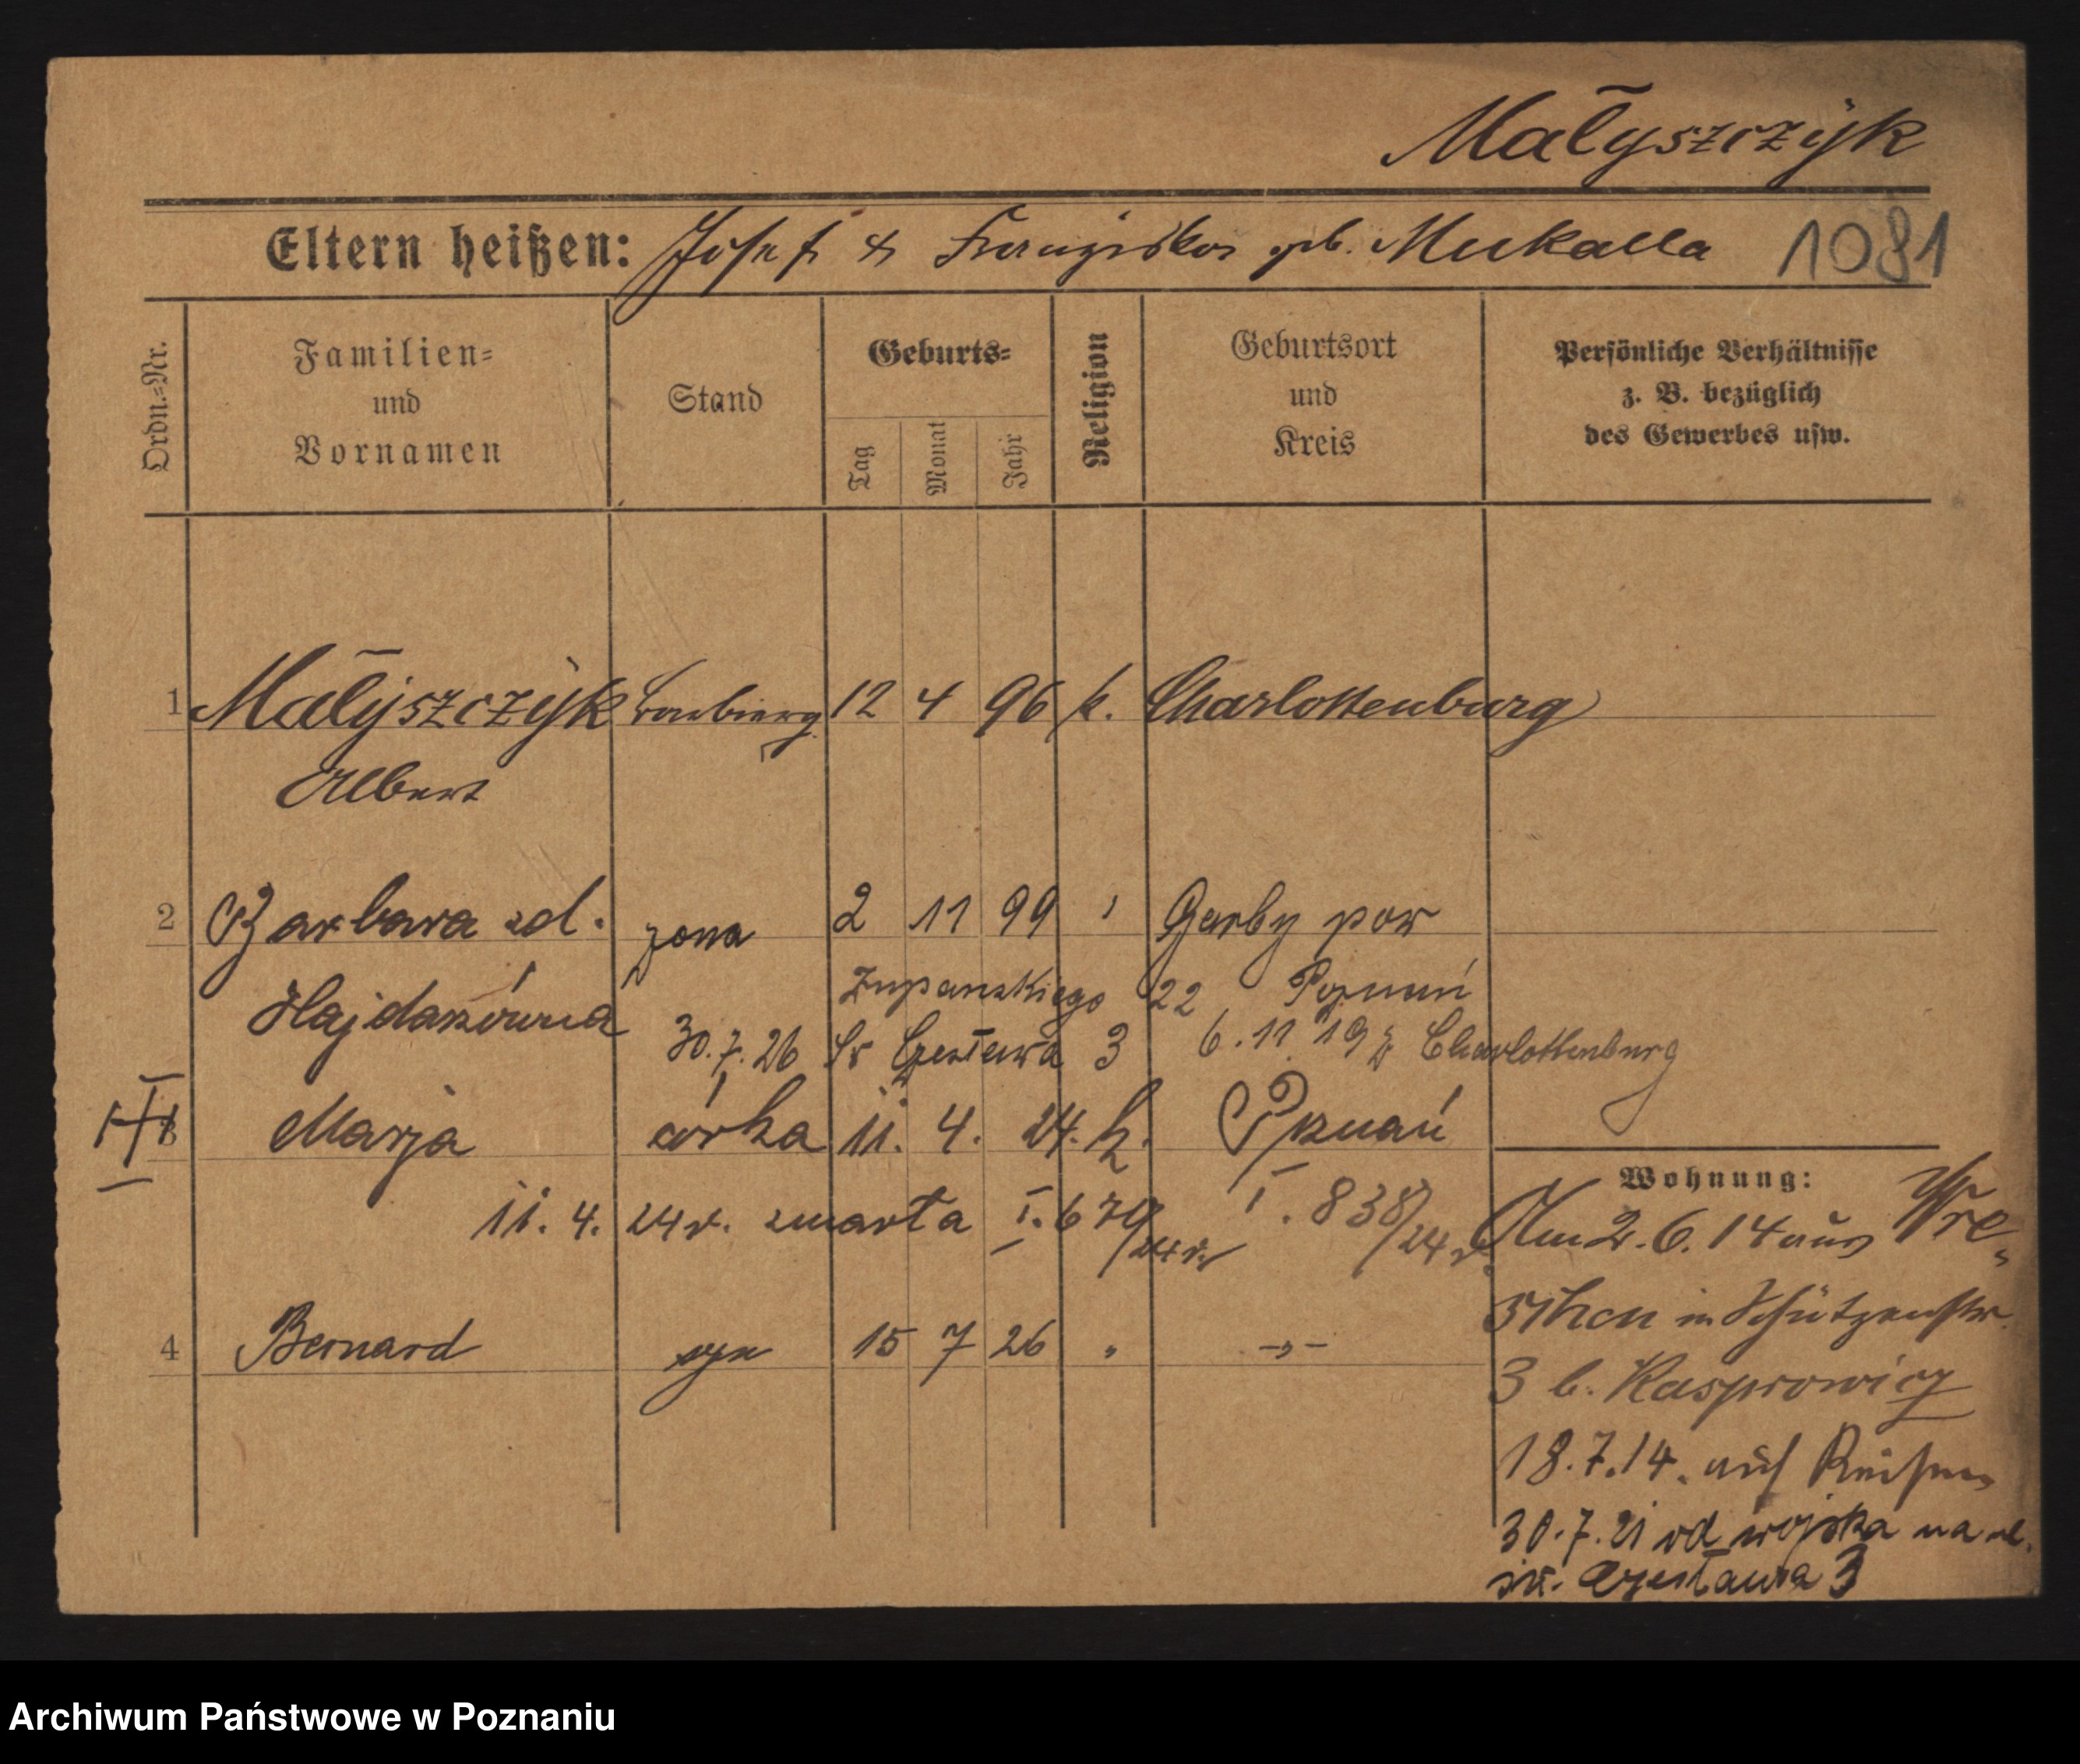 Małyszczyk
Eltern heißen: Josef & Franziska geb. Mukalla 1081
Ordn.=Nr.
Familien=
und
Vornamen
Stand
Geburts=
Tag
Monat
Jahr
Religion
Geburtsort
und
Kreis
Persönliche Verhältnisse
z. B. bezüglich
des Gewerbes usw.
1 Małyszczyk 12 4 96 k. Charlottenburg
Albert
2 Barbara zd. żona 2 11 99 Garby pow
Hajdaszówna Żupańskiego 22 Poznań
30.7.26 Św Czesława 3 6.11.19 Charlottenburg
3 Marja córka 11. 4. 24. k. Poznań
11. 4. 24 r. zmarła I. 679/24 r. I. 838/24 r.
4 Bernard syn 15 7 26 " -"-
Wohnung:
Am 2.6.14 aus Wre=
schen in Schützenstr.
3 b. Kasprowicz
18.7.14. auf Reisen
30.7.21 od wojska na ul.
św. Czesława 3
Archiwum Państwowe w Poznaniu